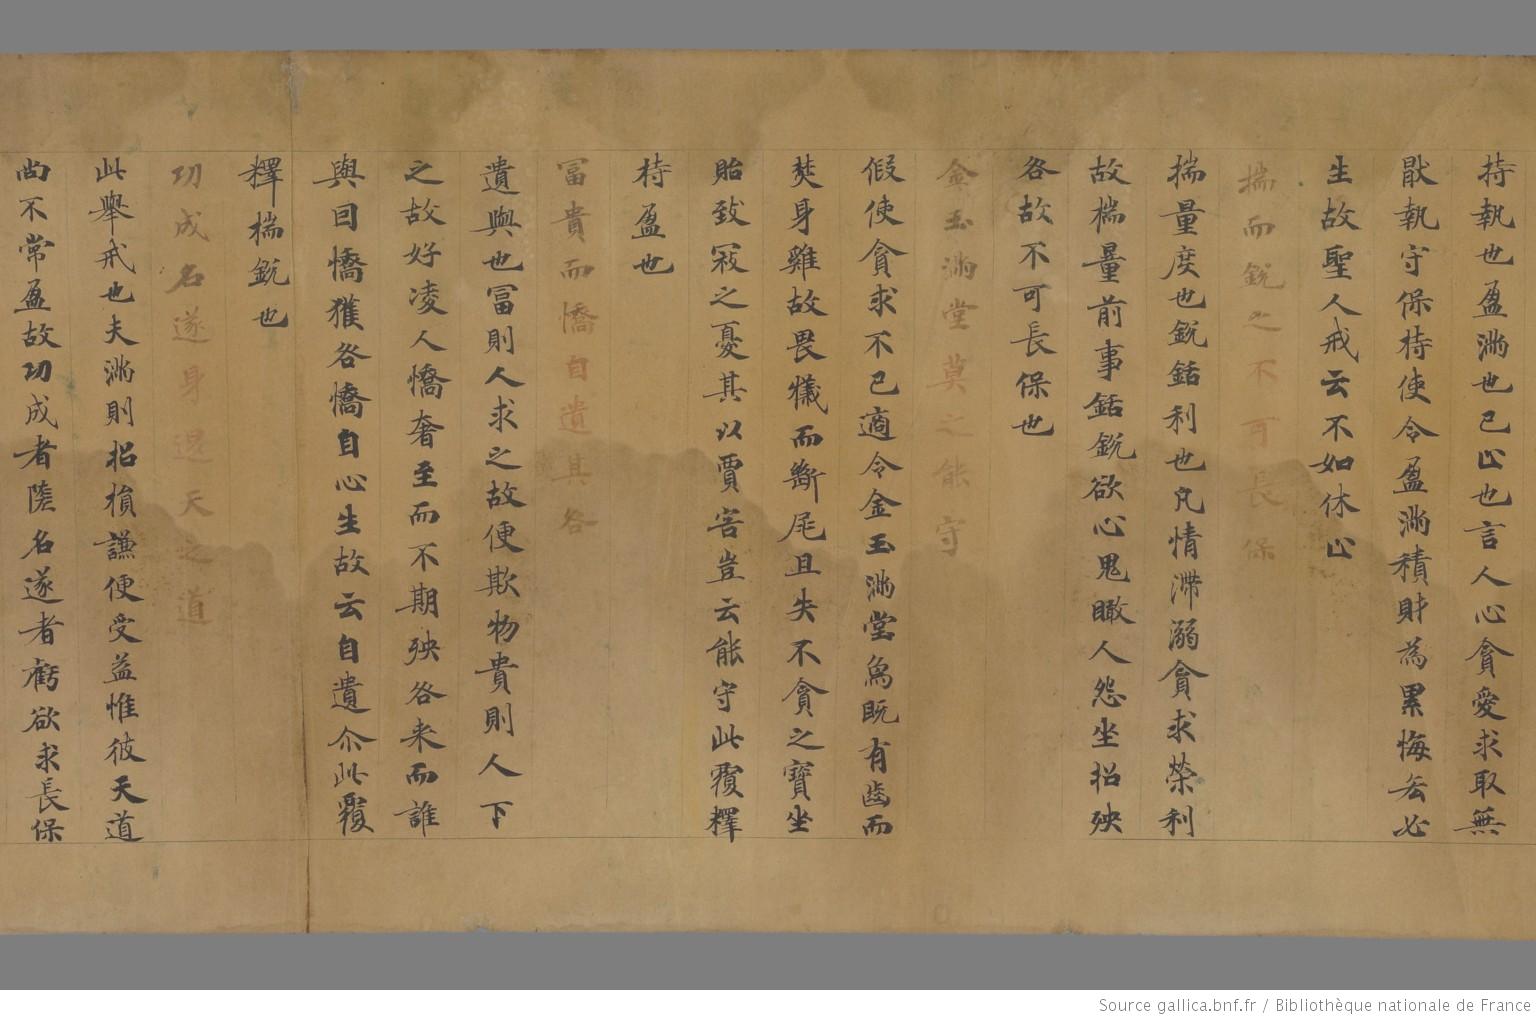 持執也盈滿也已止也言人心貪愛求取無
猒執守保持使令盈滿積財為累悔吝必
生故聖人戒云不如休止
揣而銳之不可長保
揣量度也銳銛利也凡情滯溺貪求榮利
故揣量前事銛銳欲心鬼瞰人怨坐招殃
咎故不可長保也
金玉滿堂莫之能守
假使貪求不已適令金玉滿堂為既有齒而
焚身雞故畏犧而斷尾且失不貪之寶坐
貽致寇之憂其以賈害豈云能守此覆釋
持盈也
冨貴而憍自遺其咎
遺與也冨則人求之故便欺物貴則人下
之故好凌人憍奢至而不期殃咎来而誰
與囙憍獲咎憍自心生故云自遺尒此覆
釋揣銳也
功成名遂身退天之道
此舉戒也夫滿則招損謙便受益惟彼天道
尚不常盈故功成者隳名遂者虧欲求長保
Source gallica.bnf.fr / Bibliothèque nationale de France